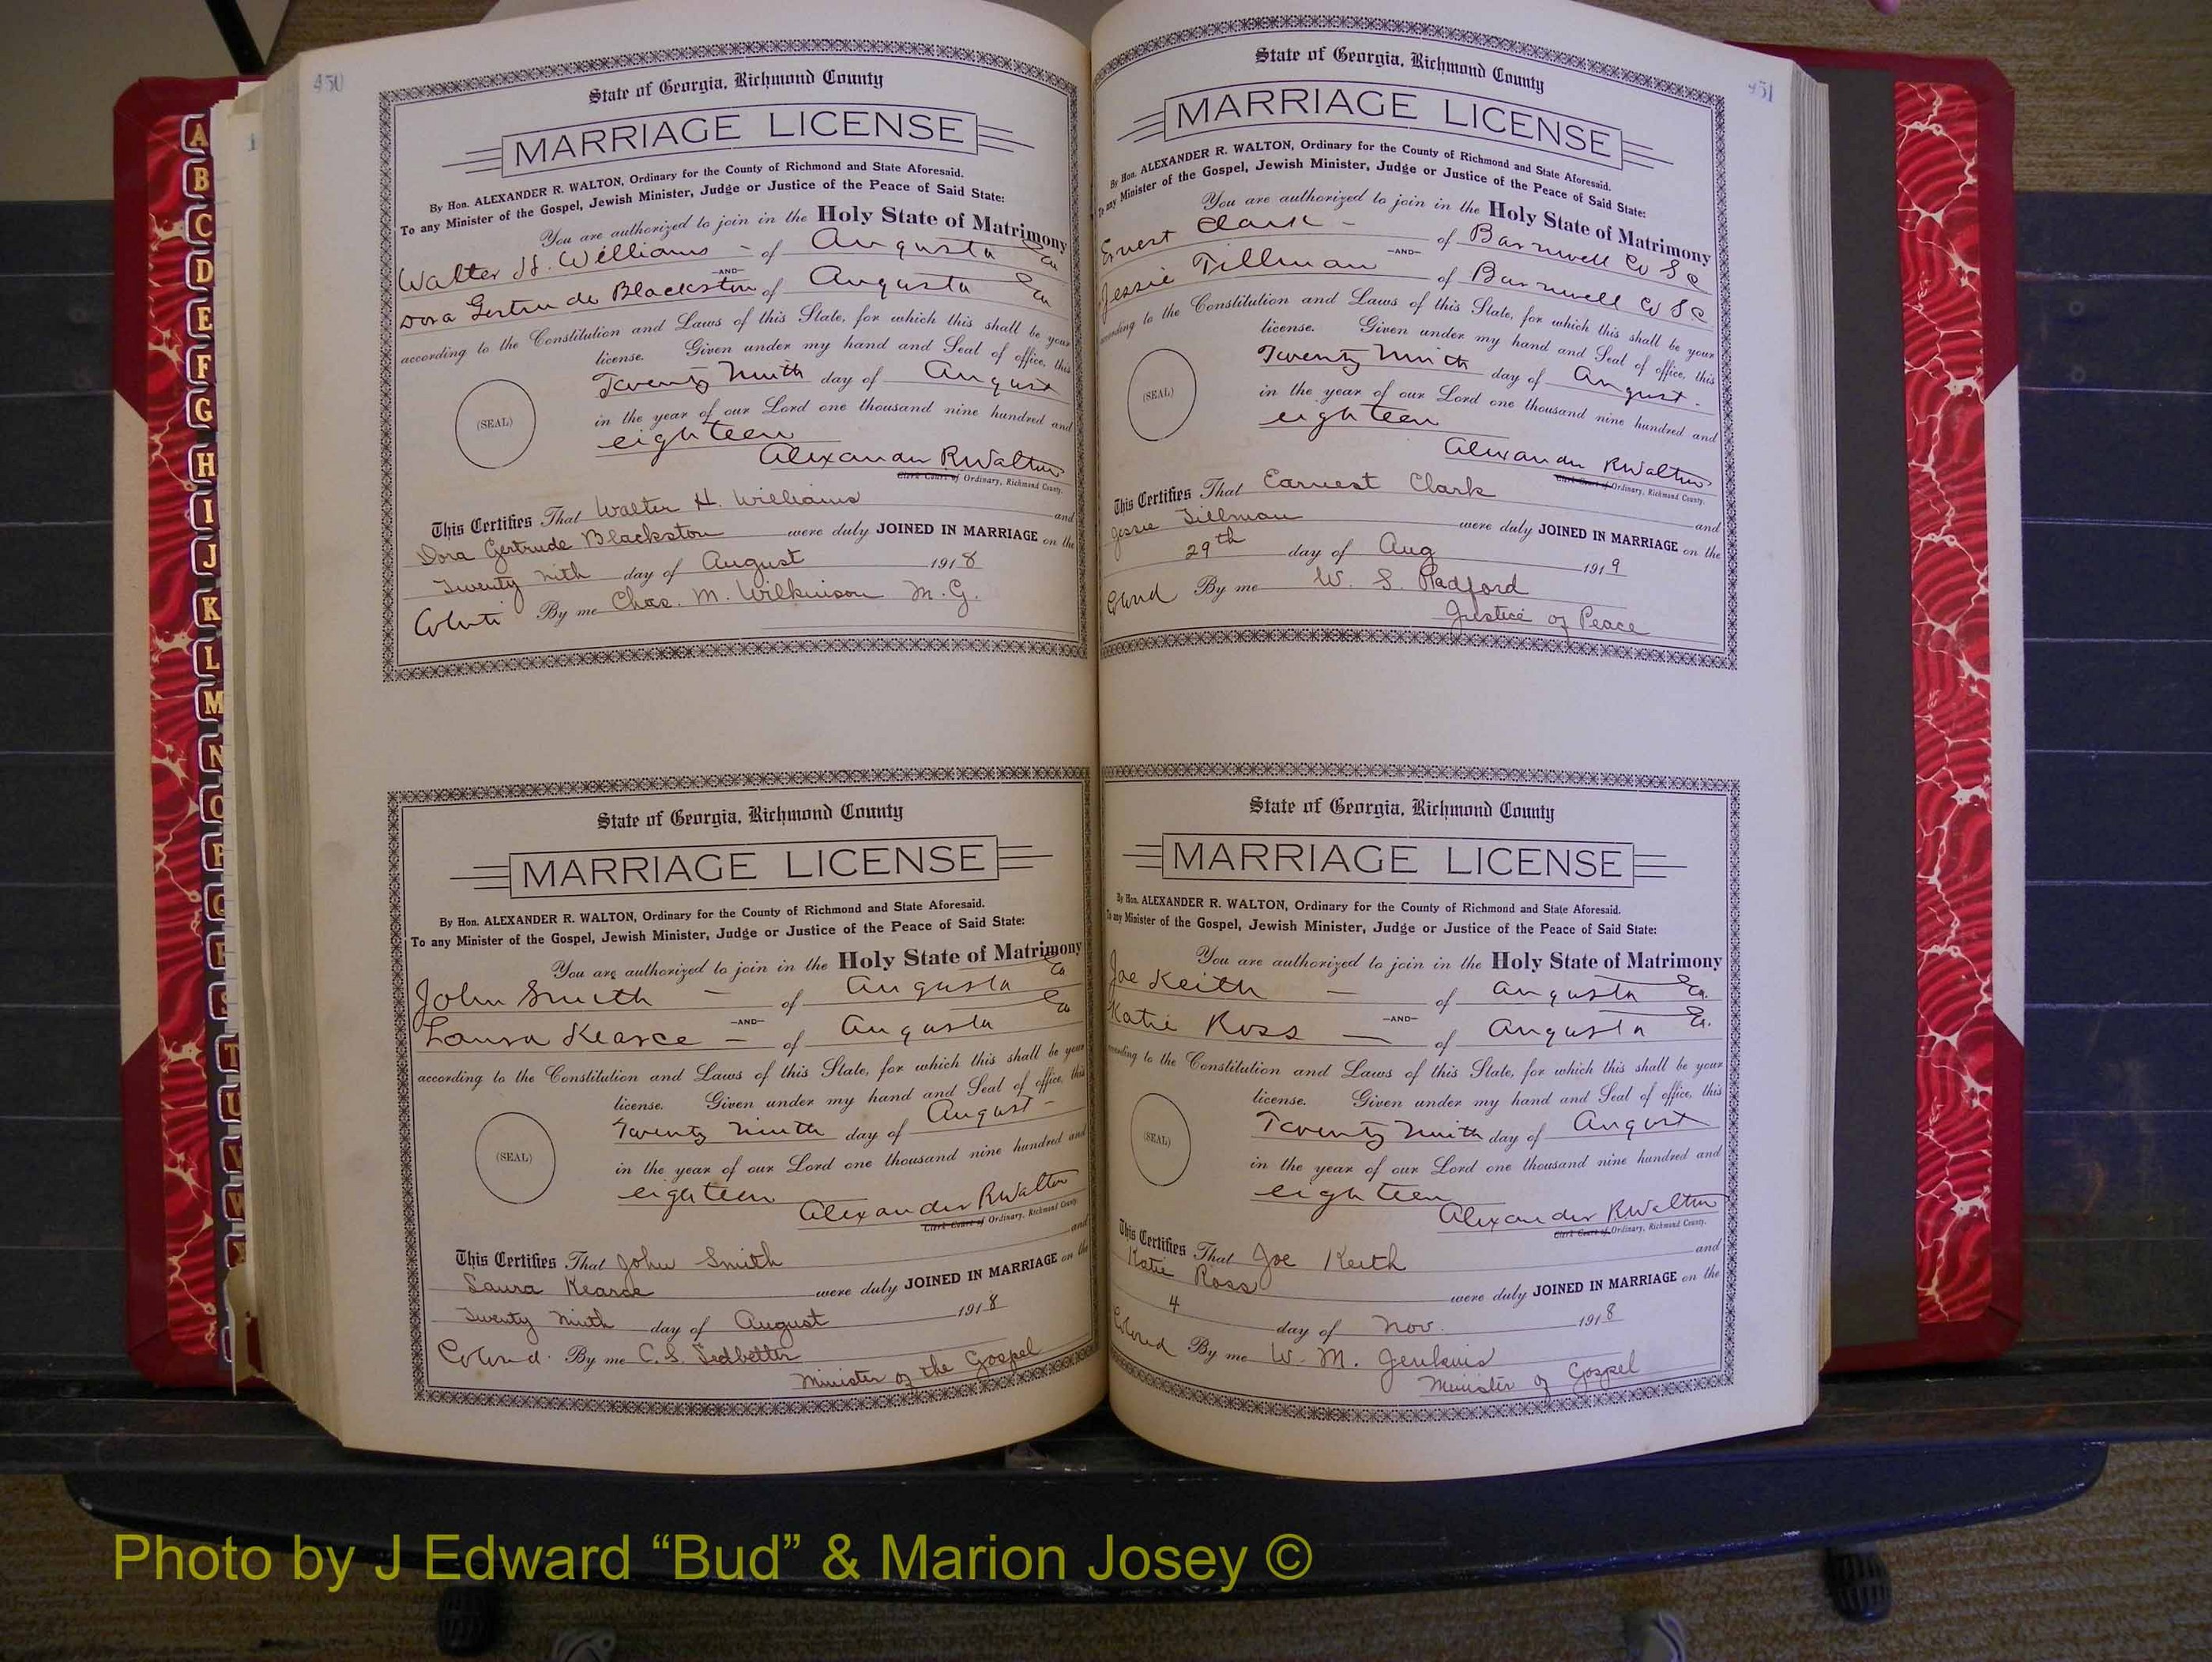 450
State of Georgia, Richmond County
MARRIAGE LICENSE
By Hon. ALEXANDER R. WALTON, Ordinary for the County of Richmond and State Aforesaid.
To any Minister of the Gospel, Jewish Minister, Judge or Justice of the Peace of Said State:
You are authorized to join in the Holy State of Matrimony
Walter H. Williams - of Augusta Ga
-AND-
Dora Gertrude Blackston of Augusta Ga
according to the Constitution and Laws of this State, for which this shall be your
license. Given under my hand and Seal of office, this
Twenty Ninth day of August
(SEAL)
in the year of our Lord one thousand nine hundred and
eighteen
Alexander R Walton
Clerk Court of Ordinary, Richmond County.
This Certifies That Walter H. Williams and
Dora Gertrude Blackston were duly JOINED IN MARRIAGE on the
Twenty nith day of August 1918
By me Chas. M. Wilkinson M.G.
State of Georgia, Richmond County
MARRIAGE LICENSE
By Hon. ALEXANDER R. WALTON, Ordinary for the County of Richmond and State Aforesaid.
To any Minister of the Gospel, Jewish Minister, Judge or Justice of the Peace of Said State:
You are authorized to join in the Holy State of Matrimony
John Smith - of Augusta Ga
-AND-
Laura Kearse - of Augusta Ga
according to the Constitution and Laws of this State, for which this shall be your
license. Given under my hand and Seal of office, this
Twenty Ninth day of August -
(SEAL)
in the year of our Lord one thousand nine hundred and
eighteen
Alexander R Walton
Clerk Court of Ordinary, Richmond County.
This Certifies That John Smith and
Laura Kearse were duly JOINED IN MARRIAGE on the
Twenty Ninth day of August 1918
Colored. By me C. S. Ledbetter
Minister of the Gospel
451
State of Georgia, Richmond County
MARRIAGE LICENSE
By Hon. ALEXANDER R. WALTON, Ordinary for the County of Richmond and State Aforesaid.
To any Minister of the Gospel, Jewish Minister, Judge or Justice of the Peace of Said State:
You are authorized to join in the Holy State of Matrimony
Ernest Clark - of Barnwell Co S C
-AND-
Jessie Tillman of Barnwell Co S C
according to the Constitution and Laws of this State, for which this shall be your
license. Given under my hand and Seal of office, this
Twenty Ninth day of August -
(SEAL)
in the year of our Lord one thousand nine hundred and
eighteen
Alexander R Walton
Clerk Court of Ordinary, Richmond County.
This Certifies That Earnest Clark and
Jessie Tillman were duly JOINED IN MARRIAGE on the
29th day of Aug 1919
Colored By me W. S. Radford
Justice of Peace
State of Georgia, Richmond County
MARRIAGE LICENSE
By Hon. ALEXANDER R. WALTON, Ordinary for the County of Richmond and State Aforesaid.
To any Minister of the Gospel, Jewish Minister, Judge or Justice of the Peace of Said State:
You are authorized to join in the Holy State of Matrimony
Joe Keith - of Augusta Ga.
-AND-
Katie Ross - of Augusta Ga.
according to the Constitution and Laws of this State, for which this shall be your
license. Given under my hand and Seal of office, this
Twenty Ninth day of August
(SEAL)
in the year of our Lord one thousand nine hundred and
eighteen
Alexander R Walton
Clerk Court of Ordinary, Richmond County.
This Certifies That Joe Keith and
Katie Ross were duly JOINED IN MARRIAGE on the
4 day of Nov. 1918
Colored By me W. M. Jenkins
Minister of Gospel
A
B
C
D
E
F
G
H
I
J
K
L
M
N
O
P
Q
R
S
T
U
V
W
Photo by J Edward “Bud” & Marion Josey ©